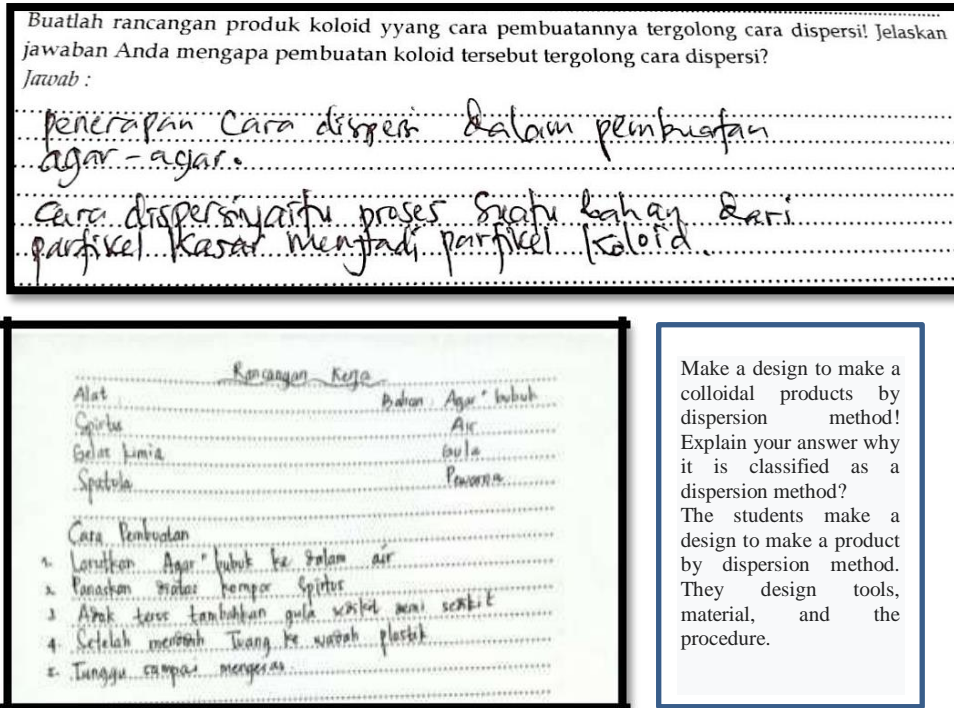 Buatlah rancangan produk koloid yyang cara pembuatannya tergolong cara dispersi! Jelaskan
jawaban Anda mengapa pembuatan koloid tersebut tergolong cara dispersi?
Jawab :
penerapan cara dispersi dalam pembuatan
agar-agar.
Cara dispersi yaitu proses suatu bahan dari
partikel kasar menjadi partikel koloid.
Rancangan Kerja
Alat Bahan : Agar" bubuk
Spirtus Air
Gelas kimia Gula
Spatula Pewarna
Cara Pembuatan
1. Larutkan Agar" bubuk ke dalam air
2. Panaskan diatas kompor Spirtus
3 Aduk terus tambahkan gula sedikit demi sedikit
4. Setelah mendidih Tuang ke wadah plastik
5. Tunggu sampai mengeras
Make a design to make a
colloidal products by
dispersion method!
Explain your answer why
it is classified as a
dispersion method?
The students make a
design to make a product
by dispersion method.
They design tools,
material, and the
procedure.